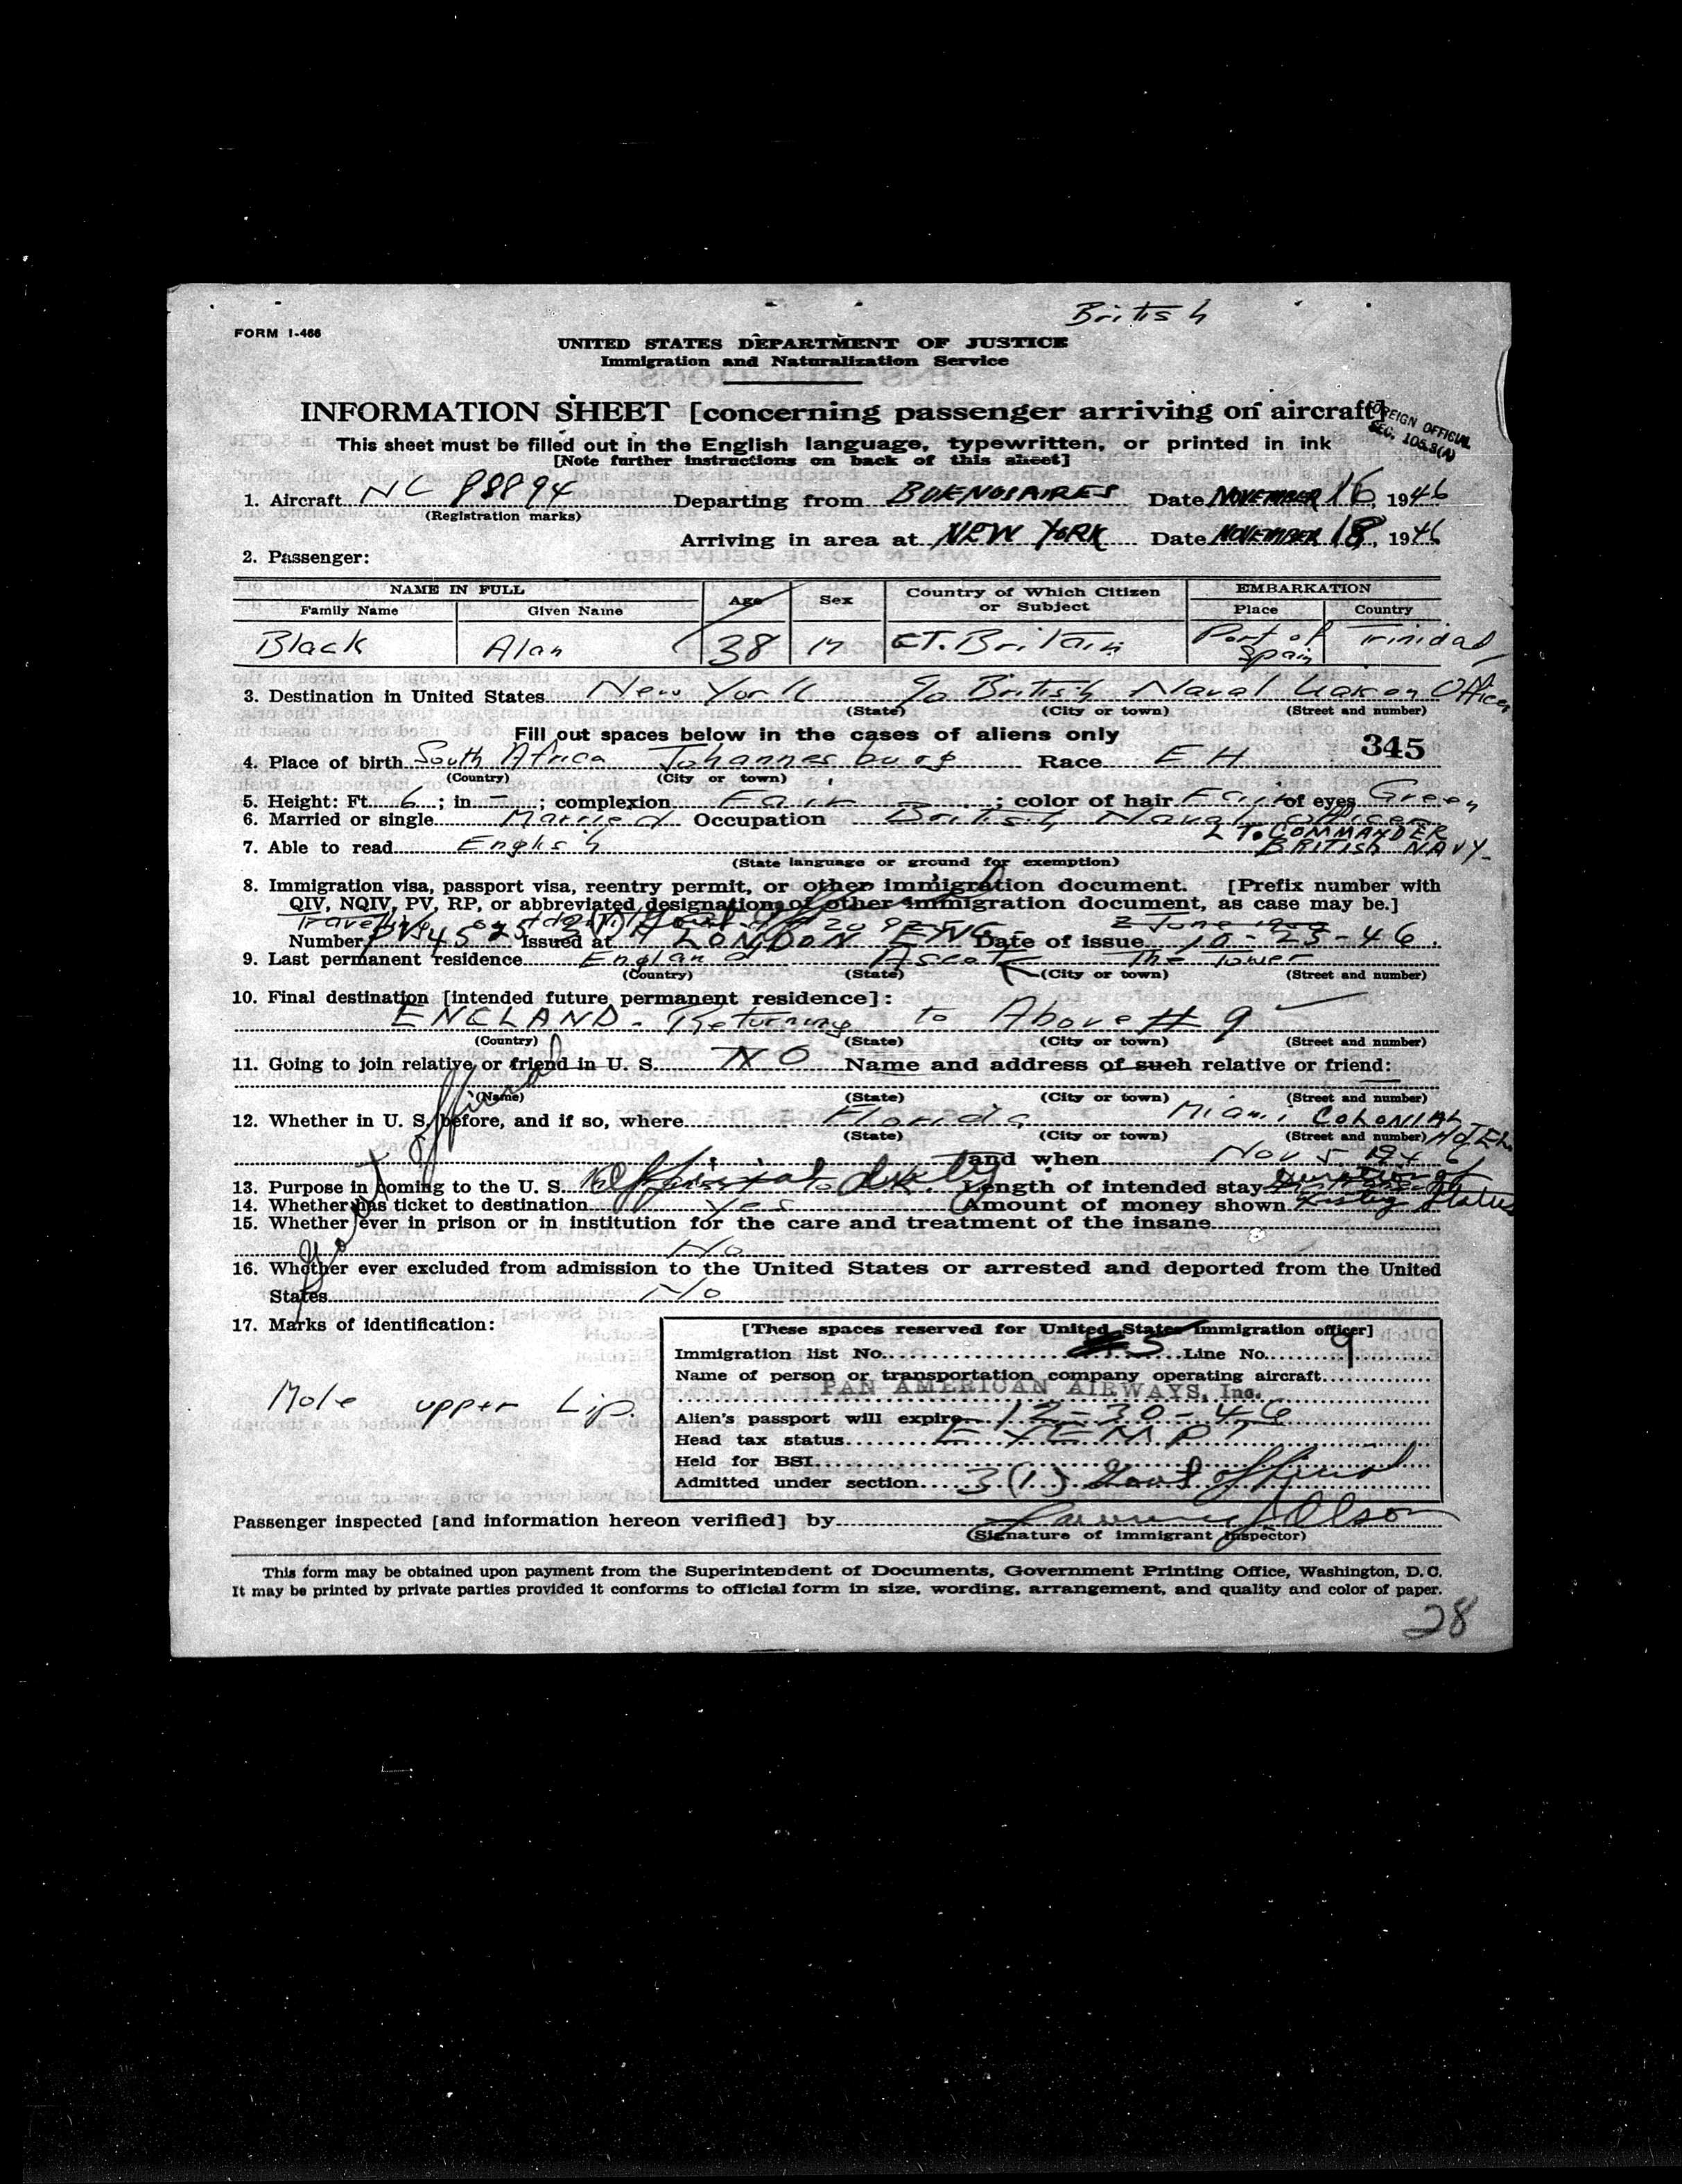 British
FORM I-466
UNITED STATES DEPARTMENT OF JUSTICE
Immigration and Naturalization Service
INFORMATION SHEET [concerning passenger arriving on aircraft]
FOREIGN OFFICIAL
SEC. 105.3(A)
This sheet must be filled out in the English language, typewritten, or printed in ink
[Note further instructions on back of this sheet]
1. Aircraft NC 88894 Departing from BUENOS AIRES Date NOVEMBER 16, 1946
(Registration marks)
Arriving in area at NEW YORK Date NOVEMBER 18, 1946
2. Passenger:
NAME IN FULL Age Sex Country of Which Citizen or Subject EMBARKATION
Family Name Given Name Place Country
Black Alan 38 M GT. Britain Port of Spain Trinidad
3. Destination in United States New York c/o British Naval Liaison Officer
(State) (City or town) (Street and number)
Fill out spaces below in the cases of aliens only
345
4. Place of birth South Africa Johannesburg Race EH
(Country) (City or town)
5. Height: Ft. 6; in. -; complexion Fair; color of hair Fair of eyes Green
6. Married or single Married Occupation British Naval Officer
LT. COMMANDER
7. Able to read English BRITISH NAVY
(State language or ground for exemption)
8. Immigration visa, passport visa, reentry permit, or other immigration document. [Prefix number with
QIV, NQIV, PV, RP, or abbreviated designations of other immigration document, as case may be.]
Travelling on
Number PV 4525 3(1) Issued at LONDON ENG Date of issue 10-25-46.
9. Last permanent residence England Ascot The Tower
(Country) (State) (City or town) (Street and number)
10. Final destination [intended future permanent residence]:
ENGLAND - Returning to Above # 9
(Country) (State) (City or town) (Street and number)
11. Going to join relative or friend in U. S. NO Name and address of such relative or friend:
(Name) (State) (City or town) (Street and number)
12. Whether in U. S. before, and if so, where Florida Miami COLONIAL HOTEL
(State) (City or town) (Street and number)
and when Nov 5 1946
13. Purpose in coming to the U. S. Official duty Length of intended stay Duration of
Status
14. Whether has ticket to destination Yes Amount of money shown
15. Whether ever in prison or in institution for the care and treatment of the insane
No
16. Whether ever excluded from admission to the United States or arrested and deported from the United
States No
Govt official
17. Marks of identification:
Mole upper Lip.
[These spaces reserved for United States immigration officer]
Immigration list No. 5 Line No. 9
Name of person or transportation company operating aircraft
PAN AMERICAN AIRWAYS, Inc.
Alien's passport will expire 12-30-46
Head tax status EXEMPT
Held for BSI
Admitted under section 3(1) Govt official
Passenger inspected [and information hereon verified] by Olson
(Signature of immigrant inspector)
This form may be obtained upon payment from the Superintendent of Documents, Government Printing Office, Washington, D. C.
It may be printed by private parties provided it conforms to official form in size, wording, arrangement, and quality and color of paper.
28